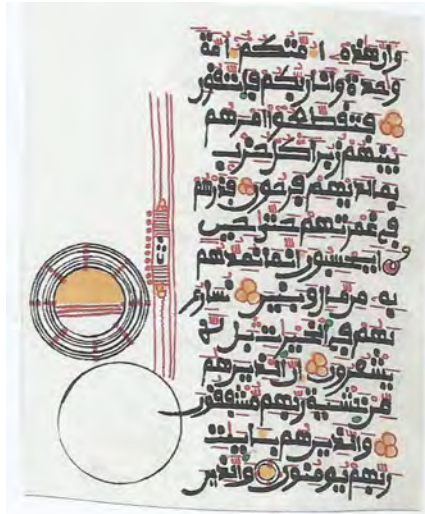 وان هذه امتكم امة
وحدة وانا ربكم فاتقون
فتقطعوا امرهم
بينهم زبرا كل حزب
بما لديهم فرحون فذرهم
في غمرتهم حتى حين
ايحسبون انما نمدهم
به من مال وبنين نسارع
لهم في الخيرت بل لا
يشعرون ان الذين هم
من خشية ربهم مشفقون
والذين هم بايت
ربهم يومنون والذين